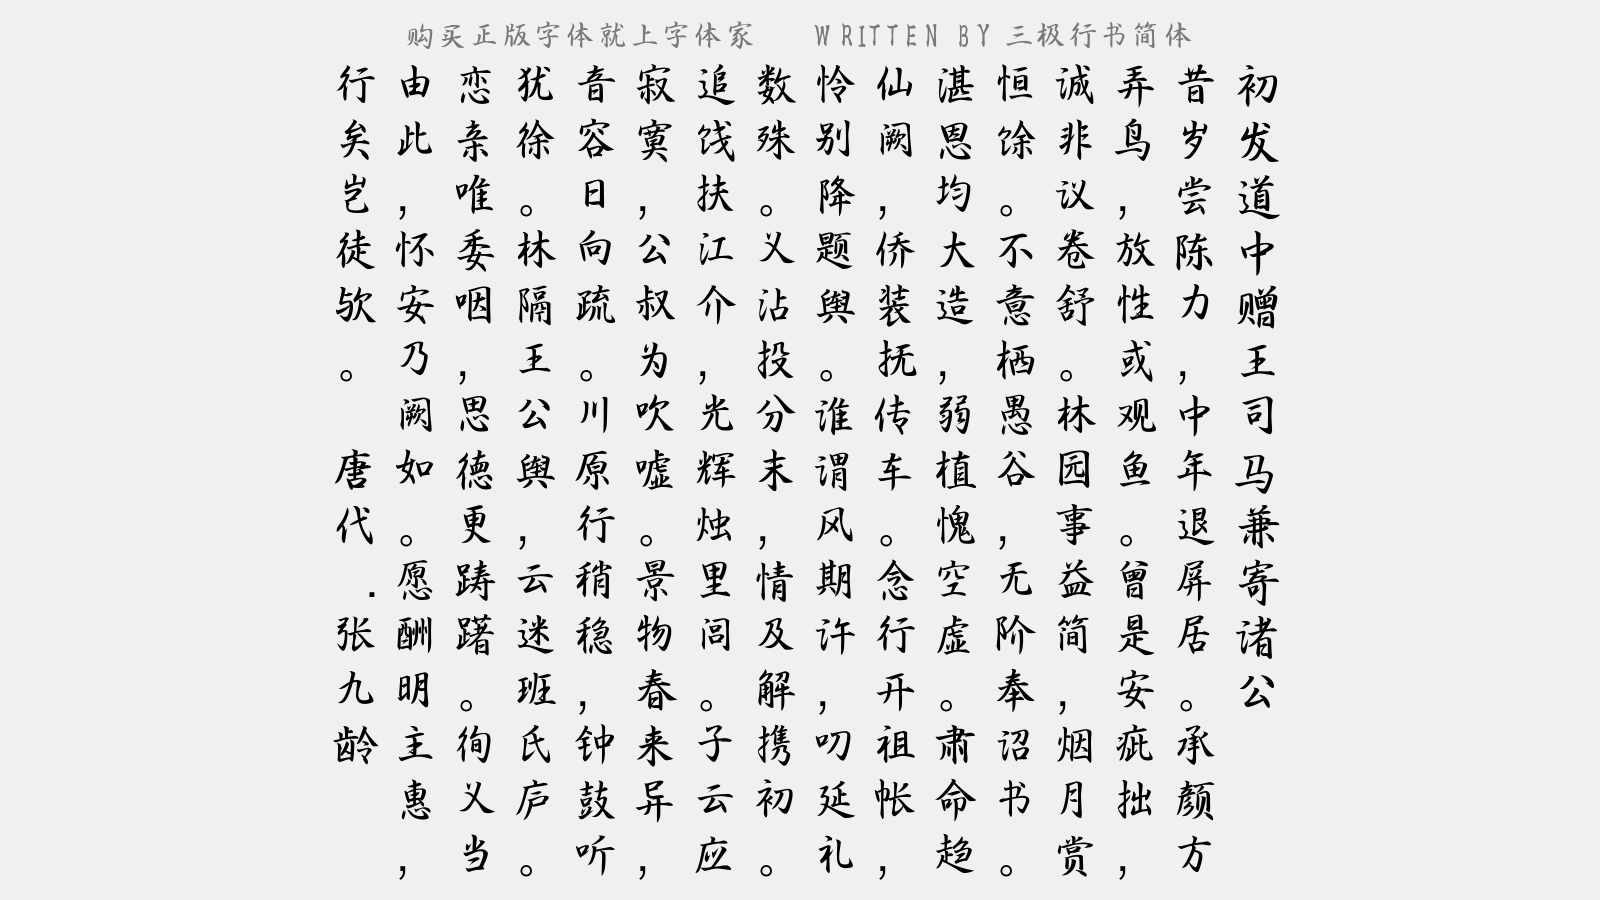 购买正版字体就上字体家 WRITTEN BY 三极行书简体
初发道中赠王司马兼寄诸公
昔岁尝陈力，中年退屏居。承颜方
弄鸟，放性或观鱼。曾是安疵拙，
诚非议卷舒。林园事益简，烟月赏
恒馀。不意栖愚谷，无阶奉诏书。
湛恩均大造，弱植愧空虚。肃命趋
仙阙，侨装抚传车。念行开祖帐，
怜别降题舆。谁谓风期许，叨延礼
数殊。义沾投分末，情及解携初。
追饯扶江介，光辉烛里闾。子云应
寂寞，公叔为吹嘘。景物春来异，
音容日向疏。川原行稍稳，钟鼓听
犹徐。林隔王公舆，云迷班氏庐。
恋亲唯委咽，思德更踌躇。徇义当
由此，怀安乃阙如。愿酬明主惠，
行矣岂徒欤。 唐代 . 张九龄